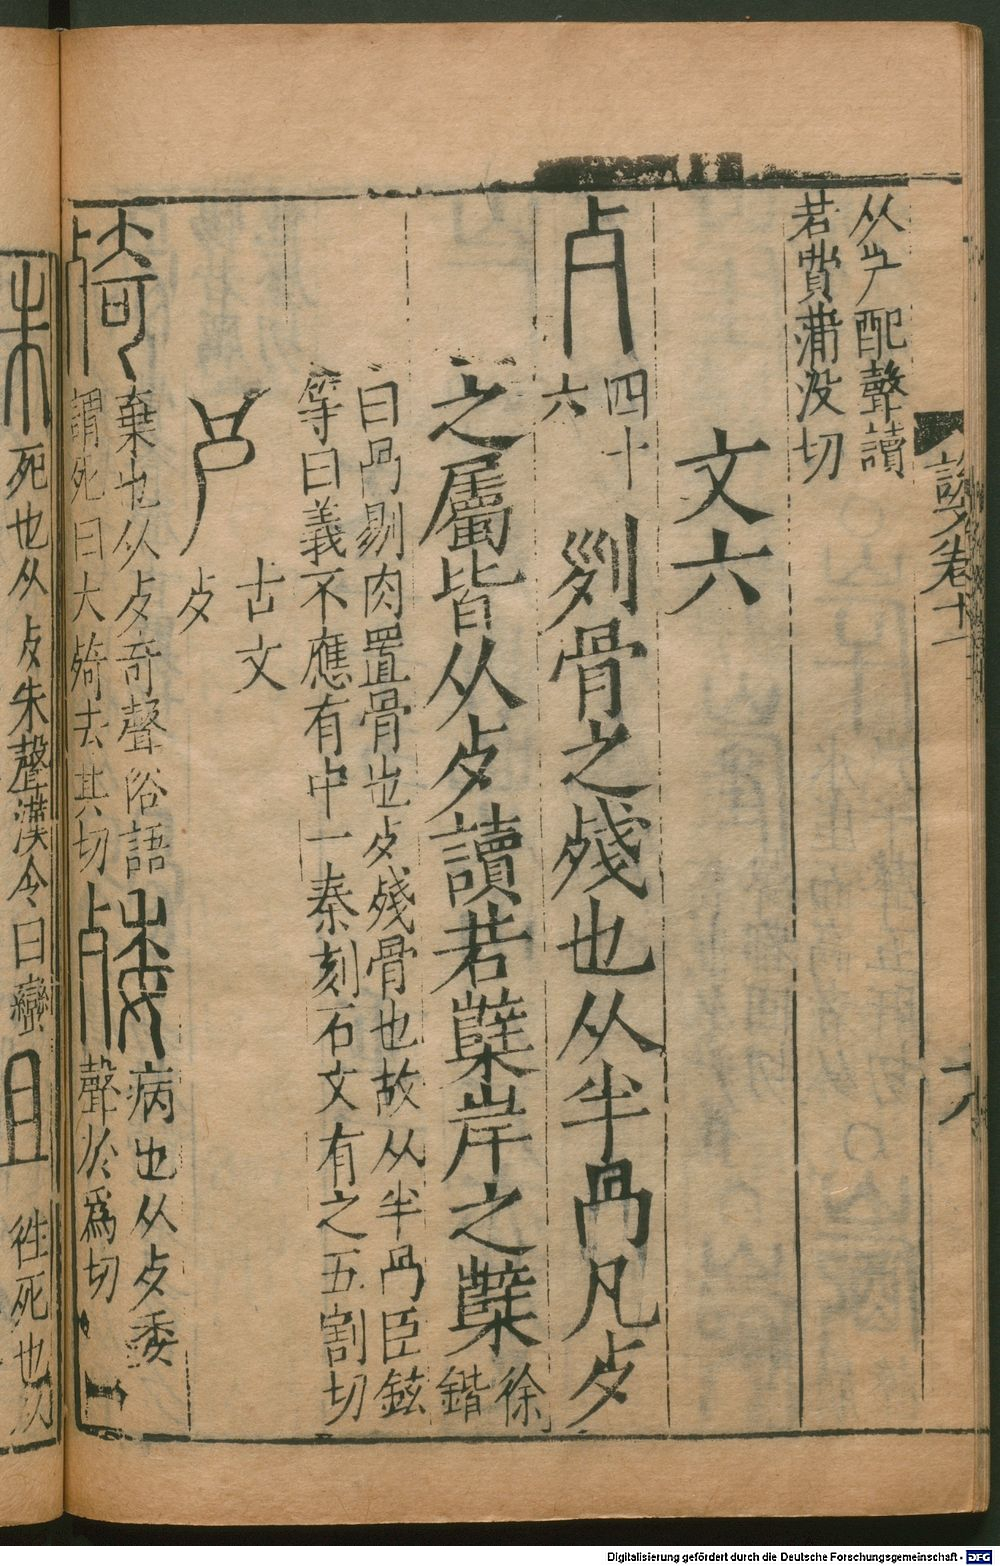 說文卷十一
六
从屵配聲讀
若費蒲没切
文六
歺 四十六 𠛱骨之殘也从半冎凡歺
之屬皆从歺讀若櫱岸之櫱 徐鍇
曰冎剔肉置骨也歺殘骨也故从半冎臣鉉
等曰義不應有中一秦刻石文有之五割切
𣦶 古文歺
𣨙 棄也从歺奇聲俗語
謂死曰大𣨙去其切
殗 病也从歺委
聲於爲切
死也从歺朱聲漢令曰蠻
往死也
Digitalisierung gefördert durch die Deutsche Forschungsgemeinschaft - DFG